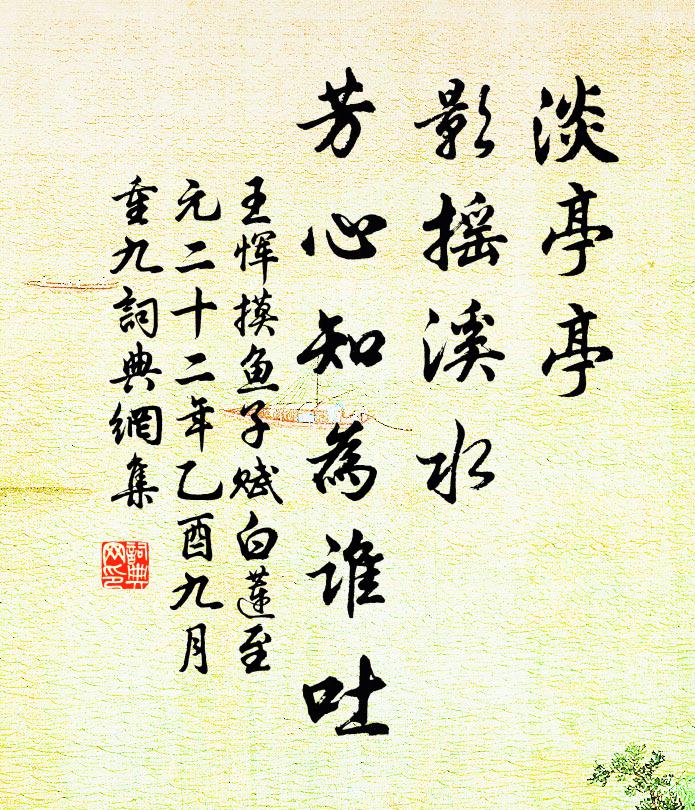 淡亭亭
影摇溪水
芳心知為谁吐
王恽摸鱼子赋白莲至
元二十二年乙酉九月
重九詞典網集
詞典
网印